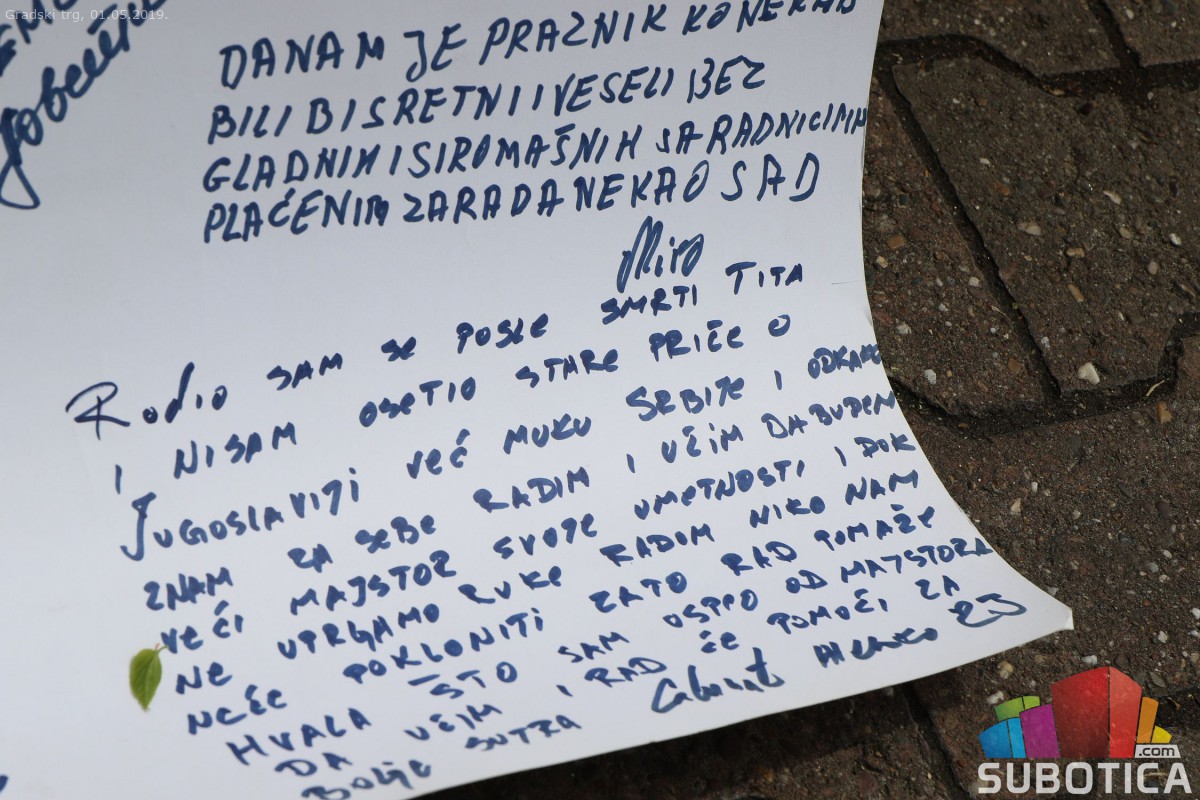 Gradski trg, 01.05.2019.
DANAM JE PRAZNIK KO NEKAD
BILI BI SRETNI I VESELI BEZ
GLADNIH I SIROMAŠNIH SA RADNICIMA
PLAĆENIM ZARADA NE KAO SAD
Miro
RODIO SAM SE POSLE SMRTI TITA
I NISAM OSETIO STARE PRIČE O
JUGOSLAVIJI VEĆ MUKU SRBIJE I ODKAKO
ZNAM ZA SEBE RADIM I UČIM DA BUDEM
VEĆI MAJSTOR SVOJE UMETNOSTI I DOK
NE UPRLJAMO RUKE RADOM NIKO NAM
NEĆE POKLONITI ZATO RAD POMAŽE
HVALA ŠTO SAM OSTAO OD MAJSTORA
DA UČIM I RAD ĆE POMOĆI ZA
BOLJE SUTRA
SUBOTICA
.com